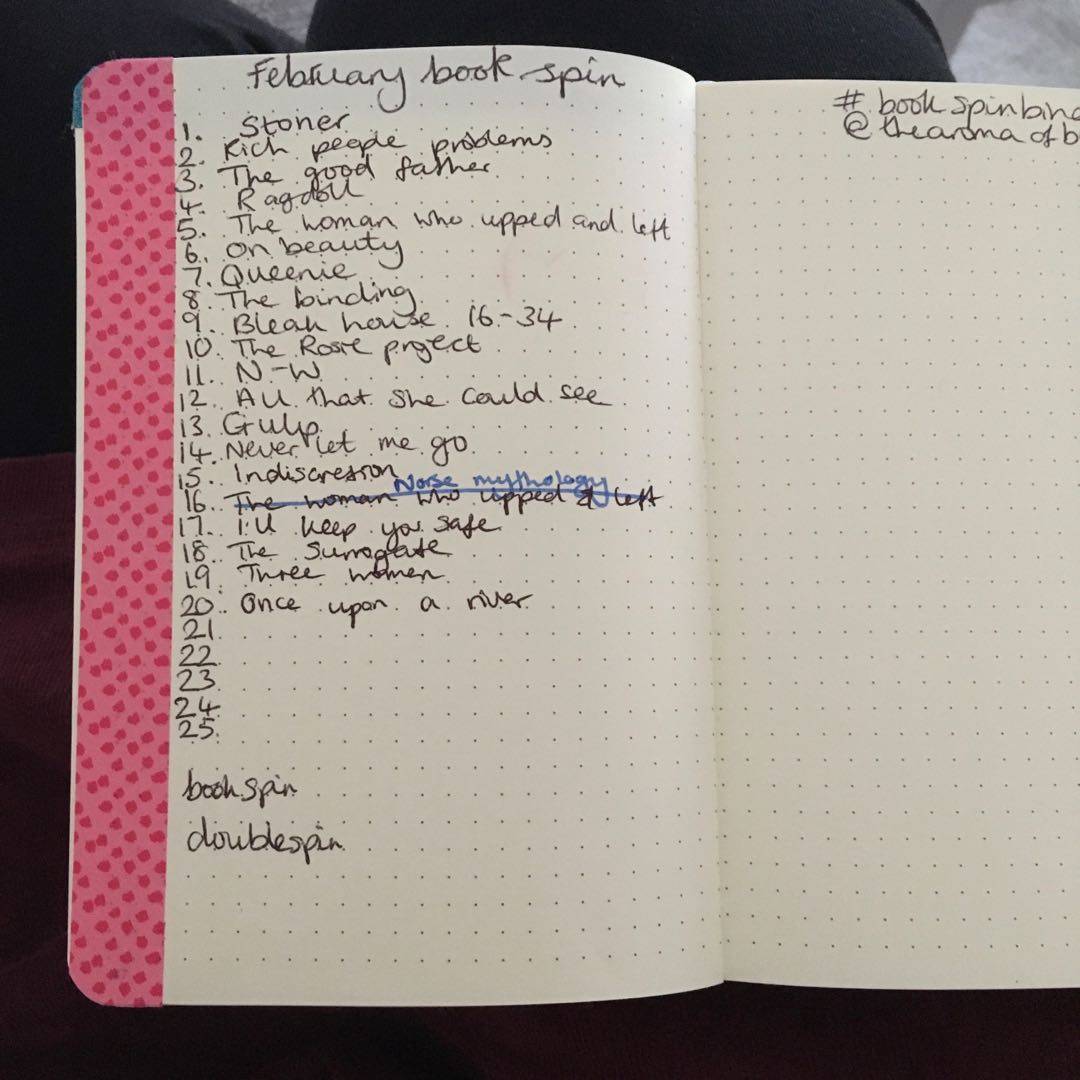 February book spin
1. Stoner
2. Rich people problems
3. The good father
4. Ragdoll
5. The woman who upped and left
6. On beauty
7. Queenie
8. The binding
9. Bleak house 16-34
10. The Rosie project
11. N-W
12. All that she could see
13. Gulp
14. Never let me go
15. Indiscression
Norse mythology
16. The woman who upped & left
17. I'll keep you safe
18. The Surrogate
19 Three women
20. Once upon a river
21.
22
23
24
25.
bookspin
doublespin
# bookspinbing
@thearomaofb